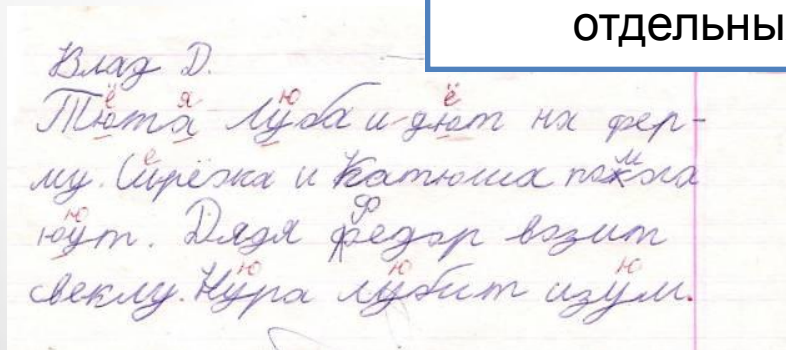 отдельны
Влад Д.
ё я ю ё
Тюта луба и дют на фер-
е м
му. Сирёжка и Катюша покога
ю Ф
юут. Дядя федор возит
ю ю ю
свеклу. Нура лубит изум.